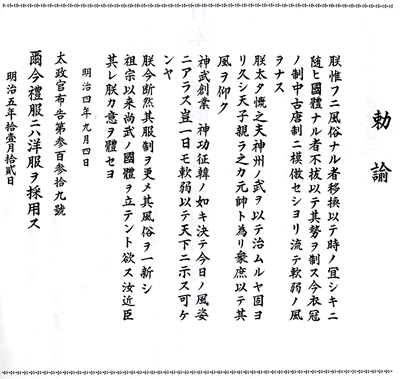 勅諭
朕惟フニ風俗ナル者移換以テ時ノ宜シキニ
随ヒ國體ナル者不抜以テ其勢ヲ制ス今衣冠
ノ制中古唐制ニ模倣セシヨリ流テ軟弱ノ風
ヲナス
朕太タ慨之夫神州ノ武ヲ以テ治ムルヤ固ヨ
リ久シ天子親ラ之カ元帥ト為リ衆庶以テ其
風ヲ仰ク
神武創業 神功征韓ノ如キ決テ今日ノ風姿
ニアラス豈一日モ軟弱以テ天下ニ示ス可ケ
ンヤ
朕今断然其服制ヲ更メ其風俗ヲ一新シ
祖宗以来尚武ノ國體ヲ立テント欲ス汝近臣
其レ朕カ意ヲ體セヨ
明治四年九月四日
太政官布告第参百参拾九號
爾今禮服ニハ洋服ヲ採用ス
明治五年拾壹月拾貳日